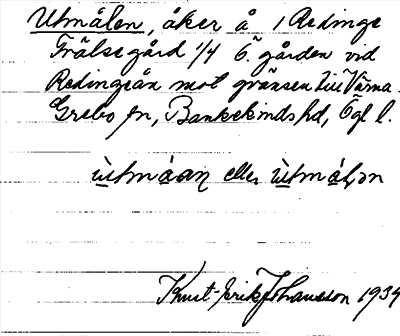 Utmålen, åker å 1 Redinge
Frälsegård 1/4 Ö. gården vid
Redingeån mot gränsen till Värna.
Grebo sn, Bankekinds hd, Ögl l.
ùtmáan eller ùtmáḷən
Knut-Erik Johansson 1934